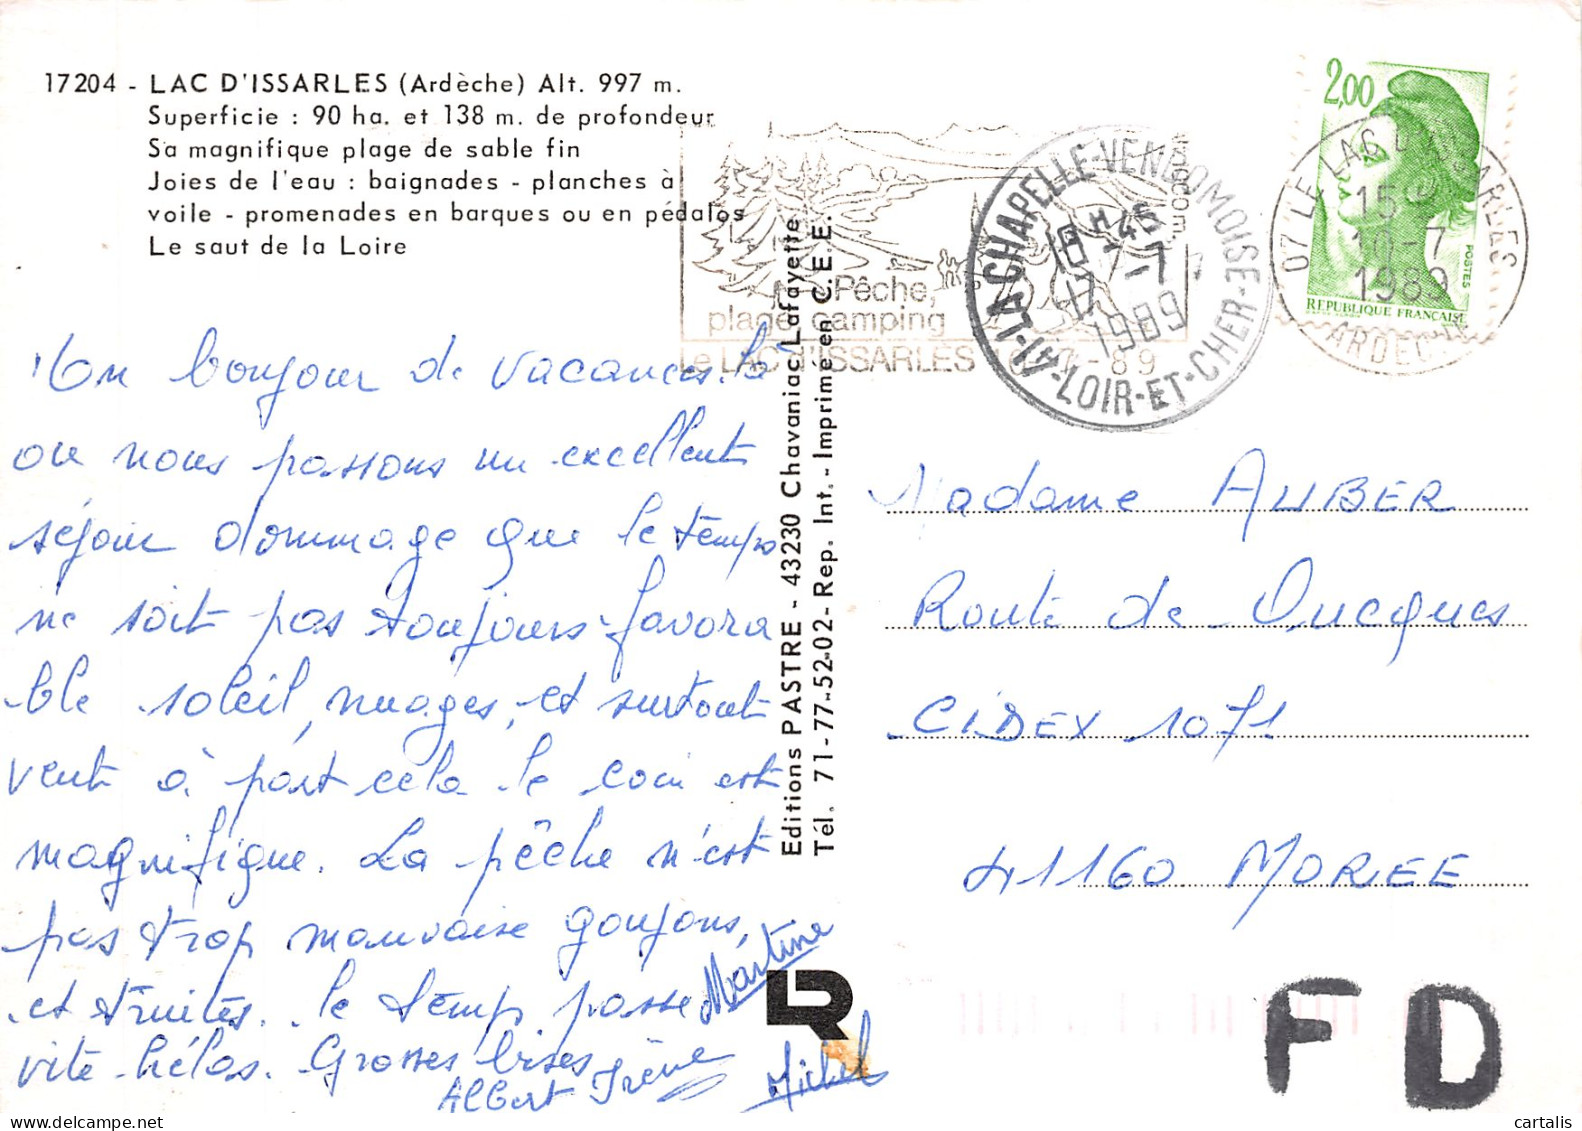 17204 - LAC D'ISSARLES (Ardèche) Alt. 997 m.
Superficie : 90 ha. et 138 m. de profondeur
Sa magnifique plage de sable fin
Joies de l'eau : baignades - planches à
voile - promenades en barques ou en pédalos
Le saut de la Loire
Un bonjour de vacances. là
ou nous passons un excellent
séjour dommage que le temps
ne soit pas toujours favora
ble soleil, nuages, et surtout
vent à part cela le coin est
magnifique. La pêche n'est
pas trop mauvaise goujons,
et truites. le temps passe
vite hélas. Grosses bises
Martine
Albert Irène
Michel
Editions PASTRE - 43230 Chavaniac Lafayette
Tél. 71-77-52-02 - Rep. Int. - Imprimé en C.E.E.
LR
Pêche,
plage, camping
Le LAC D'ISSARLES
LA CHAPELLE-VENDOMOISE
41-LOIR-ET-CHER
1989
2,00
POSTES
REPUBLIQUE FRANÇAISE
07 LE LAC D'ISSARLES
15 H
10-7
1989
ARDECHE
Madame AUBER
Route de Oucques
CIDEX 1071
41160 MOREE
FD
cartalis